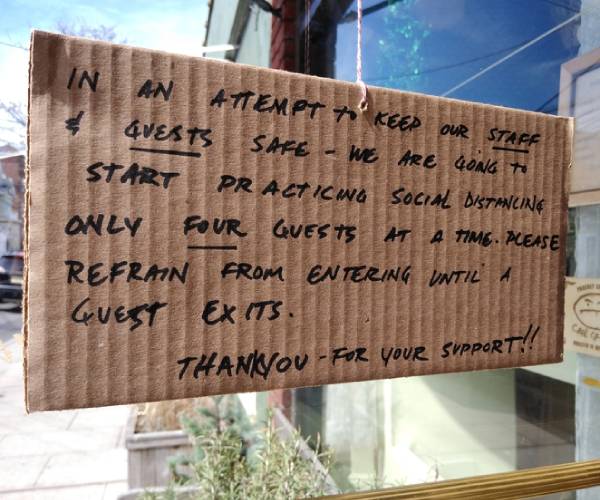 IN AN ATTEMPT to KEEP OUR STAFF
& GUESTS SAFE - WE ARE GOING to
START PRACTICING SOCIAL DISTANCING
ONLY FOUR GUESTS AT A TIME. PLEASE
REFRAIN FROM ENTERING UNTIL A
GUEST EXITS.
THANKYOU - FOR YOUR SUPPORT!!